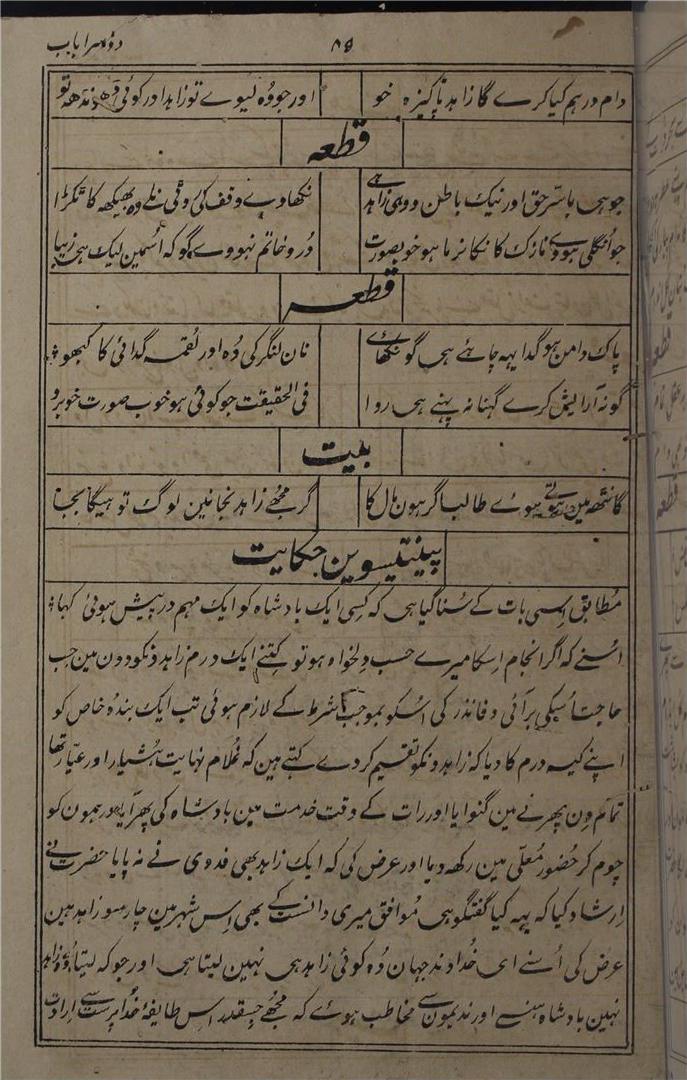 دوسرا باب
۸۹
دام درہم کیا کرے گا زاہد پاکیزہ خو اور جو وہ لیوے تو زاہد اور کوئی ڈھونڈھ تو
قطعہ
جو ہی با سرّ حق اور نیک باطن ووہی زاہد ہے نکھاوے وقف کی روٹی نلے وہ بھیکھ کا ٹکڑا
جو اُنگلی ہووے نازک کان کا نرما ہو خوبصورت دُر و خاتم نہووے گو کہ اُسمین لیک ہی زیبا
قطعہ
پاک دامن ہو گدا یہہ چاہئے ہی گو نکھائے نان لنگر کی وُہ اور لُقمہ گدائی کا کبھو
گو نہ آرایش کرے گہنا نہ پہنے ہی روا فی الحقیقت جو کوئی ہو خوب صورت خوبرو
بیت
گانٹھ مین ہوتے ہوے طالب اگر ہون مال کا گر مجھے زاہد نجانین لوگ تو ہیگا بجا
پینتیسوین حکایت
مُطابق اِسی بات کے سُنا گیا ہی کہ کِسی ایک بادشاہ کو ایک مہم درپیش ہوئی کہا
اُسنے کہ اگر انجام اِسکا میرے حسب دِلخواہ ہو تو کِتنے ایک درم زاہدونکو دون مین جب
حاجت اُسکی برآئی وفا نذر کی اُسکو بموجب شرط کے لازم ہوئی تب ایک بندۂ خاص کو
اپنے کیسہ درم کا دیا کہ زاہدونکو تقسیم کردے کہتے ہین کہ غُلام نہایت ہُشیار اور عیّار تھا
تمام دِن پھرنے مین گنوایا اور رات کے وقت خدمت مین بادشاہ کی پھر آیا اور درہمون کو
چوم کر حضور مُعلّیٰ مین رکھہ دیا اور عرض کی کہ ایک زاہد بھی فدوی نے نہ پایا حضرت نے
اِرشاد کیا کہ یہہ کیا گفتگو ہی مُوافق میری دانست کے بھی اِس شہر مین چار سو زاہد ہین
عرض کی اُسنے ای خُداوند جہان وُہ کوئی زاہد ہی نہین لیتا ہی اور جو کہ لیتا وُہ زاہد
نہین بادشاہ ہنسے اور ندیمون سے مخاطب ہوے کہ مجھے جِسقدر اِس طایفۂ خُدا پرست سے اِرادت